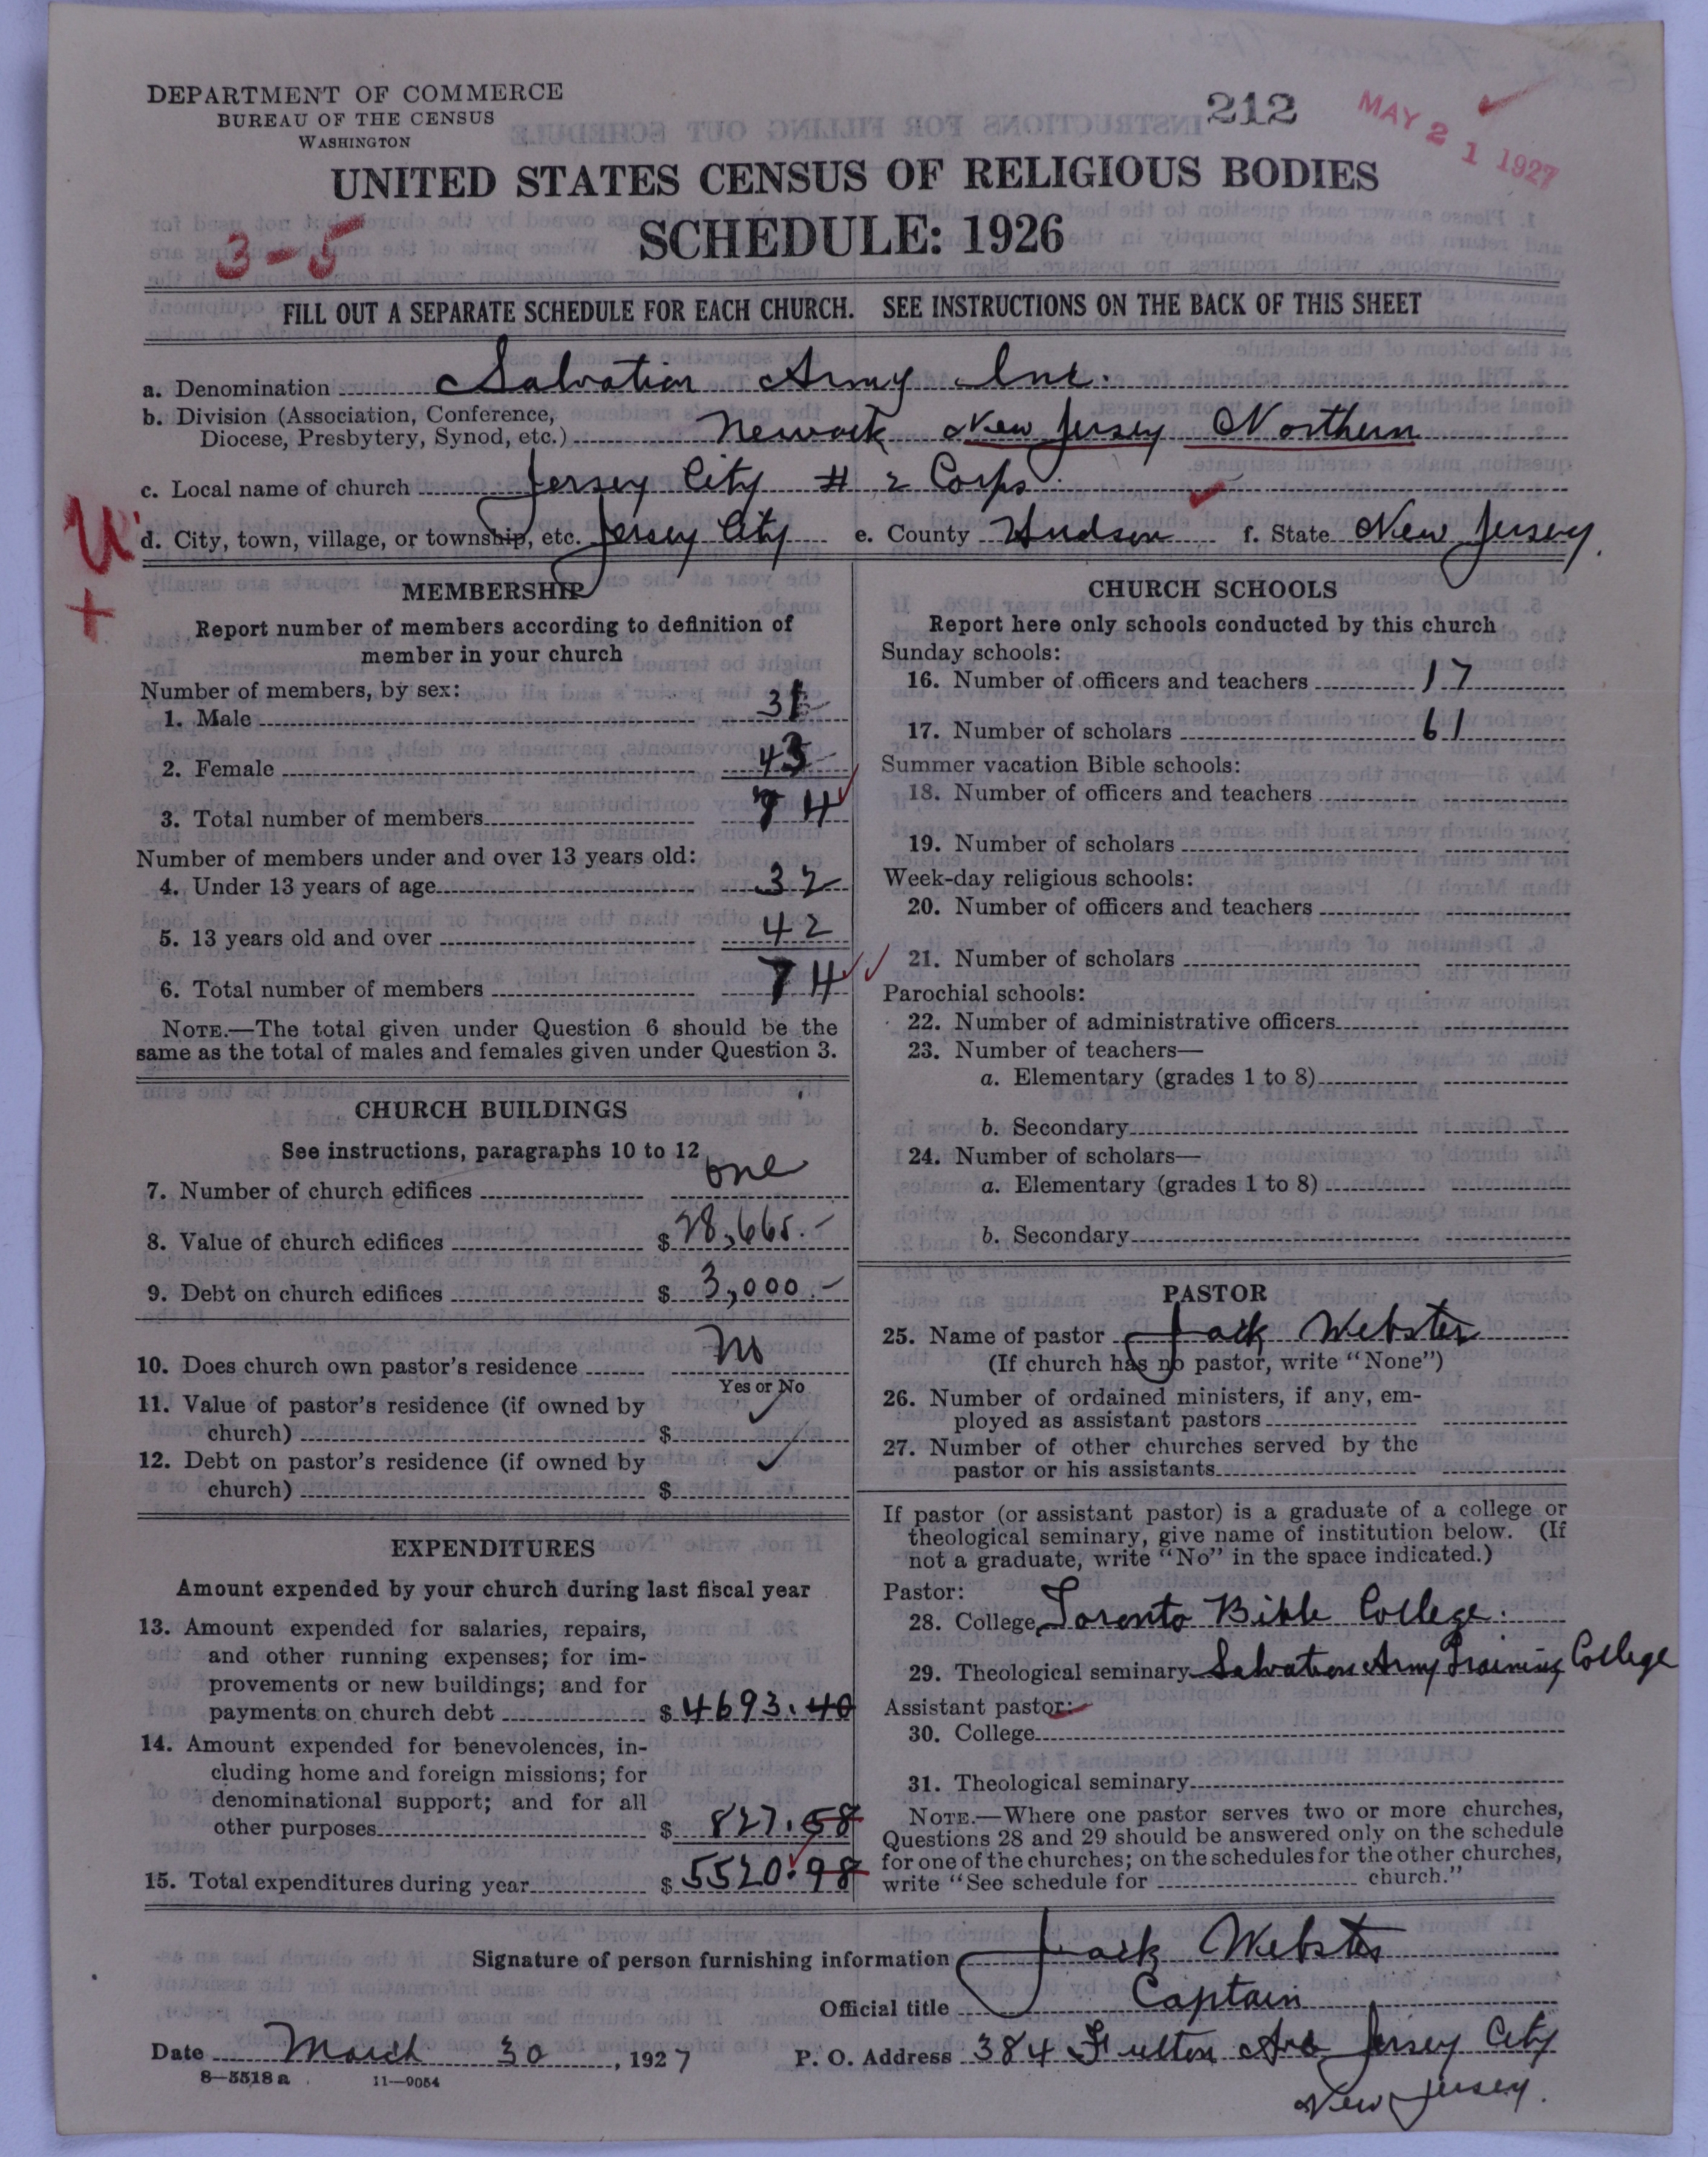 DEPARTMENT OF COMMERCE
BUREAU OF THE CENSUS
WASHINGTON
212
MAY 21 1927
UNITED STATES CENSUS OF RELIGIOUS BODIES
SCHEDULE: 1926
3-5
FILL OUT A SEPARATE SCHEDULE FOR EACH CHURCH. SEE INSTRUCTIONS ON THE BACK OF THIS SHEET
a. Denomination Salvation Army Inc.
b. Division (Association, Conference,
Diocese, Presbytery, Synod, etc.) Newark New Jersey Northern
c. Local name of church Jersey City # 2 Corps.
U
d. City, town, village, or township, etc. Jersey City e. County Hudson f. State New Jersey.
+
MEMBERSHIP
Report number of members according to definition of
member in your church
Number of members, by sex:
1. Male 31
2. Female 43
3. Total number of members 74
Number of members under and over 13 years old:
4. Under 13 years of age 32
5. 13 years old and over 42
6. Total number of members 74
NOTE.—The total given under Question 6 should be the
same as the total of males and females given under Question 3.
CHURCH BUILDINGS
See instructions, paragraphs 10 to 12
7. Number of church edifices one
8. Value of church edifices $ 28,665.-
9. Debt on church edifices $ 3,000.-
10. Does church own pastor's residence No
Yes or No
11. Value of pastor's residence (if owned by
church) $
12. Debt on pastor's residence (if owned by
church) $
EXPENDITURES
Amount expended by your church during last fiscal year
13. Amount expended for salaries, repairs,
and other running expenses; for im-
provements or new buildings; and for
payments on church debt $ 4693.40
14. Amount expended for benevolences, in-
cluding home and foreign missions; for
denominational support; and for all
other purposes $ 827.58
15. Total expenditures during year $ 5520.98
CHURCH SCHOOLS
Report here only schools conducted by this church
Sunday schools:
16. Number of officers and teachers 17
17. Number of scholars 61
Summer vacation Bible schools:
18. Number of officers and teachers
19. Number of scholars
Week-day religious schools:
20. Number of officers and teachers
21. Number of scholars
Parochial schools:
22. Number of administrative officers
23. Number of teachers—
a. Elementary (grades 1 to 8)
b. Secondary
24. Number of scholars—
a. Elementary (grades 1 to 8)
b. Secondary
PASTOR
25. Name of pastor Jack Webster
(If church has no pastor, write "None")
26. Number of ordained ministers, if any, em-
ployed as assistant pastors
27. Number of other churches served by the
pastor or his assistants
If pastor (or assistant pastor) is a graduate of a college or
theological seminary, give name of institution below. (If
not a graduate, write "No" in the space indicated.)
Pastor:
28. College Toronto Bible College.
29. Theological seminary Salvation Army Training College
Assistant pastor:
30. College
31. Theological seminary
NOTE.—Where one pastor serves two or more churches,
Questions 28 and 29 should be answered only on the schedule
for one of the churches; on the schedules for the other churches,
write "See schedule for church."
Signature of person furnishing information Jack Webster
Official title Captain
Date March 30, 1927 P. O. Address 384 Fulton Ave Jersey City
8-5518a 11-9054
New Jersey.